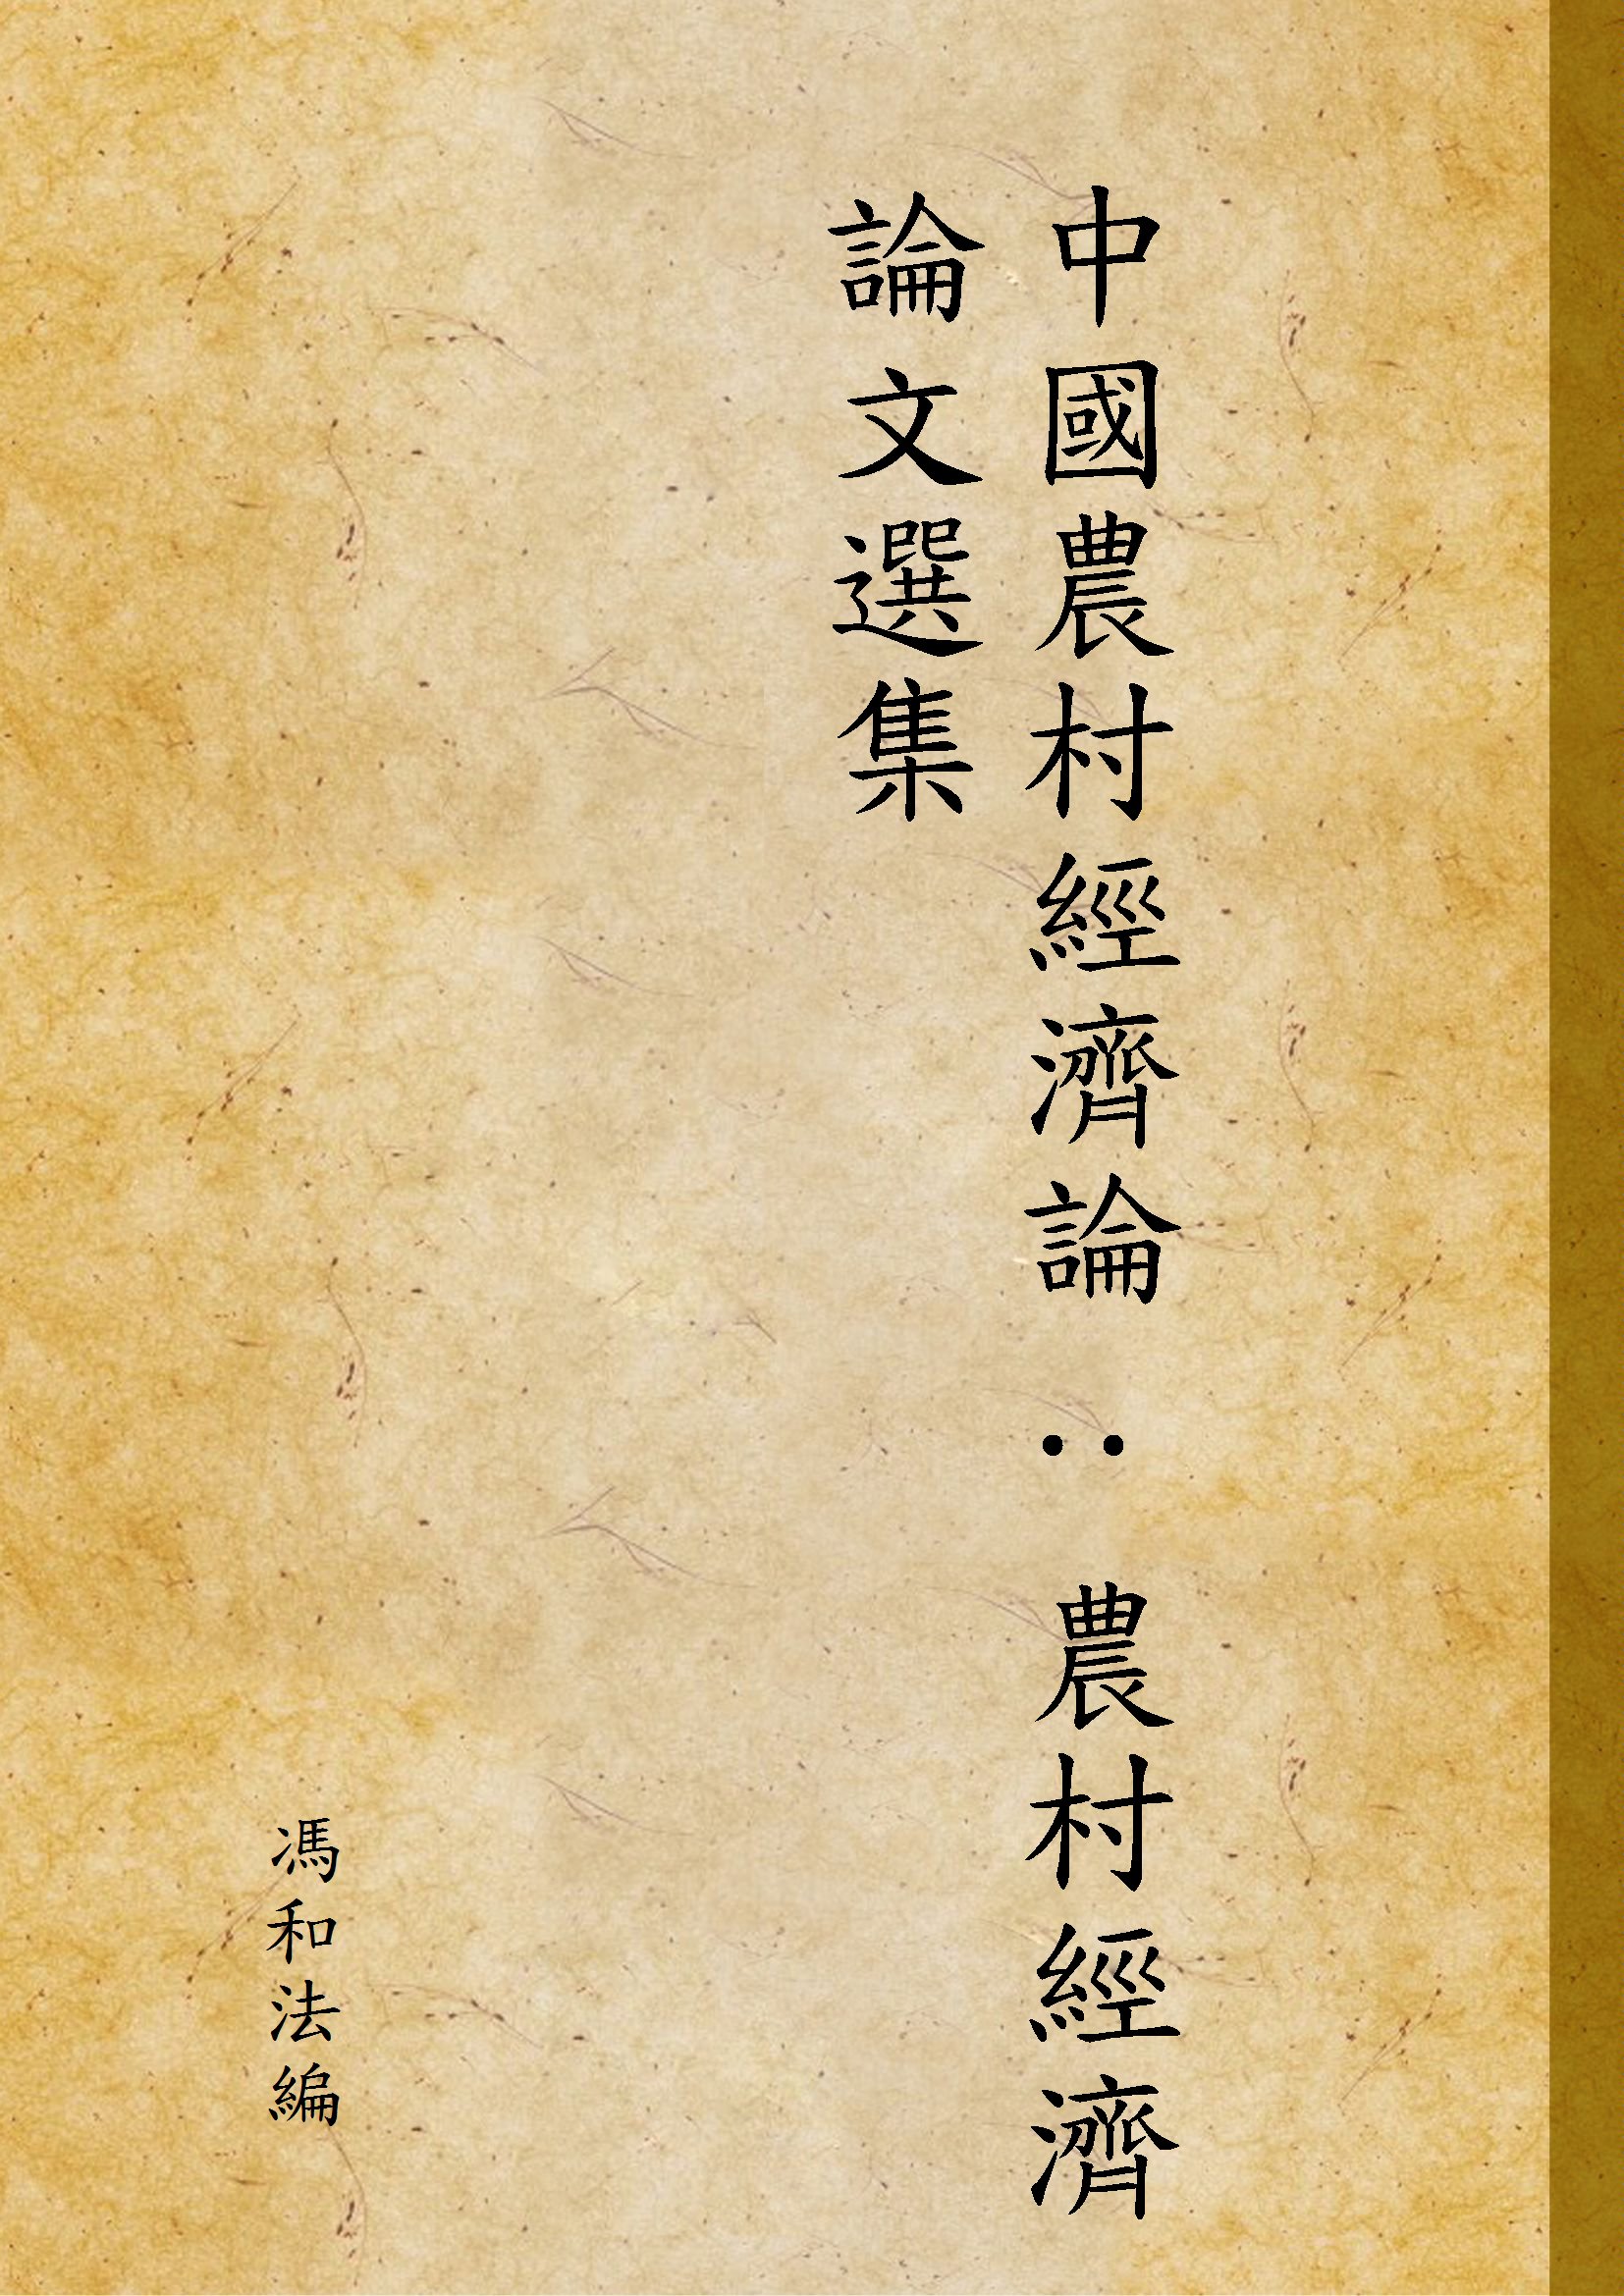 中國農村經濟論：農村經濟
論文選集
馮和法編